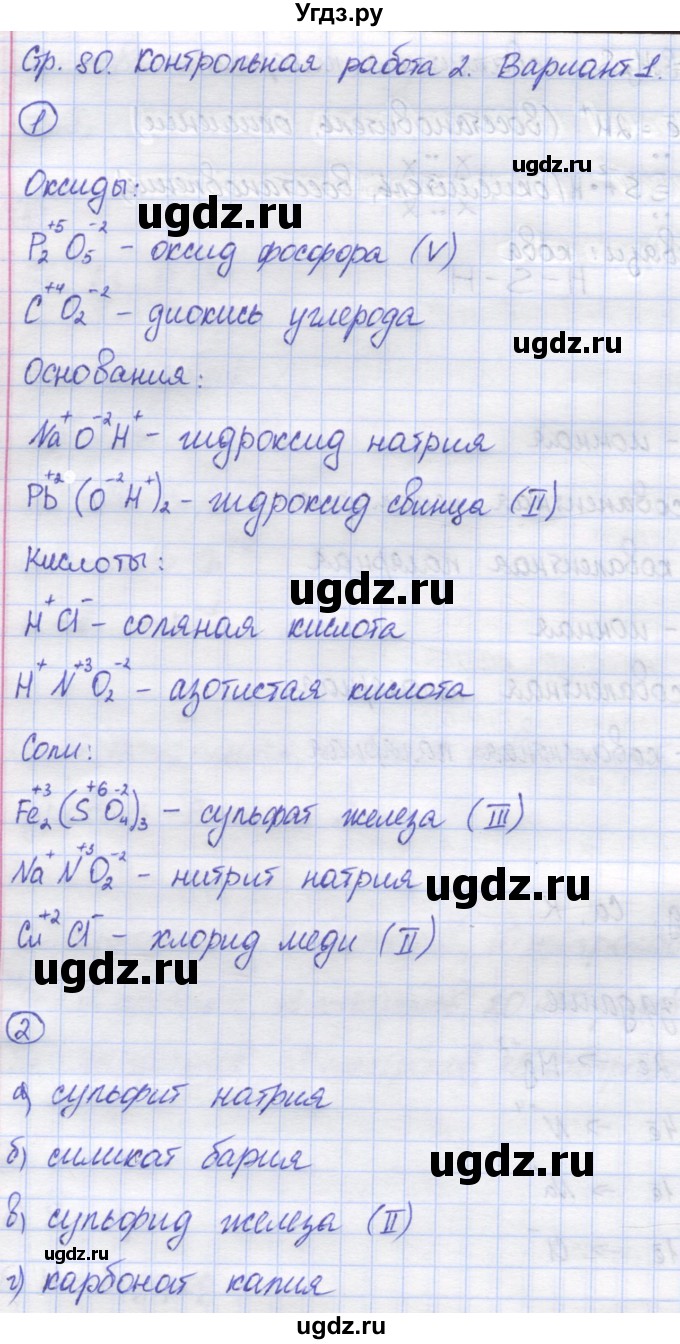 Угдз.ру
Стр. 80. Контрольная работа 2. Вариант 1.
1
Оксиды:
ugdz.ru
P₂⁺⁵O₅⁻² – оксид фосфора (V)
C⁺⁴O₂⁻² – диокись углерода
ugdz.ru
Основания:
Na⁺O⁻²H⁺ – гидроксид натрия
Pb⁺²(O⁻²H⁺)₂ – гидроксид свинца (II)
Кислоты:
ugdz.ru
H⁺Cl⁻ – соляная кислота
H⁺N⁺³O₂⁻² – азотистая кислота
Соли:
Fe₂⁺³(S⁺⁶O₄⁻²)₃ – сульфат железа (III)
Na⁺N⁺³O₂⁻² – нитрит натрия
ugdz.ru
Cu⁺²Cl⁻ – хлорид меди (II)
ugdz.ru
2
а) сульфит натрия
б) силикат бария
ugdz.ru
в) сульфид железа (II)
ugdz.ru
г) карбонат калия
ugdz.ru